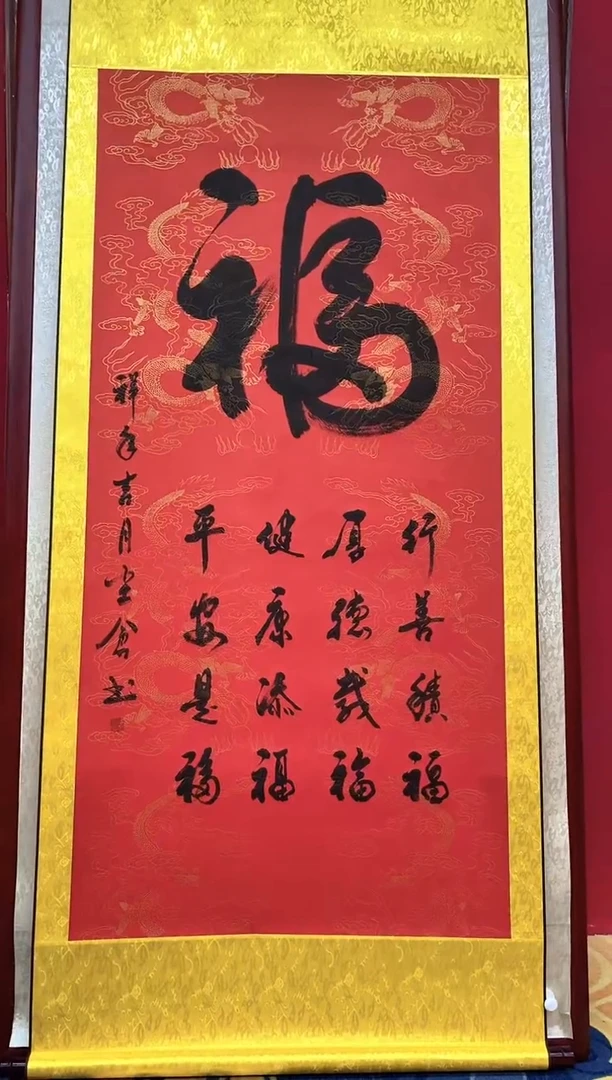 福
行善積福
厚德載福
健康添福
平安是福
祥年吉月坐倉书